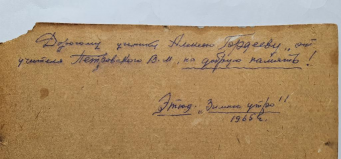 Дорогому ученику Алексею Гордееву от
учителя Петровского В.М. на добрую память!
Этюд „Зимнее утро"
1966г.